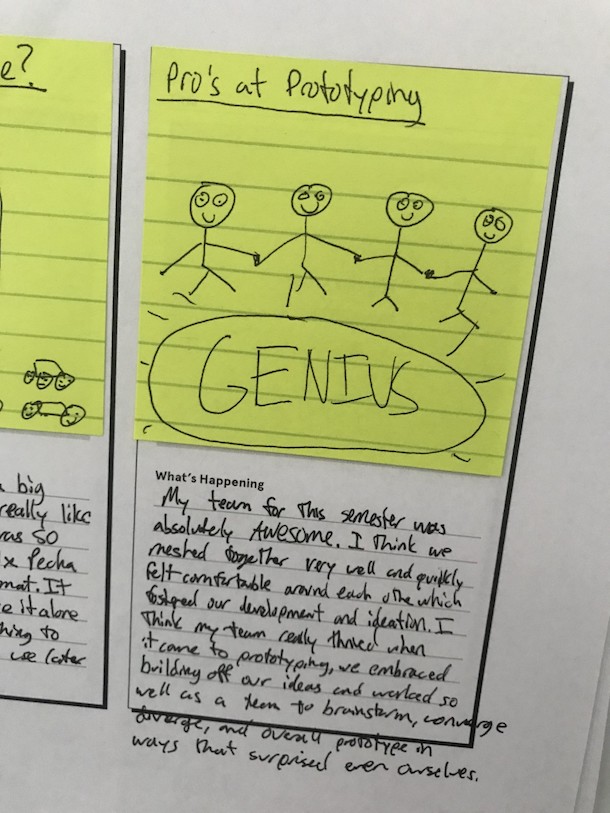 e?
Pro's at Prototyping
GENIUS
What's Happening
My team for this semester was
absolutely Awesome. I think we
meshed together very well and quickly
felt comfortable around each othe which
fostered our development and ideation. I
think my team really thrived when
it came to prototyping, we embraced
building off our ideas and worked so
well as a team to brainstorm, converge
diverge, and overall prototype in
ways that surprised even ourselves.
big
really like
was so
x Pecha
mat. It
e it alone
hing to
use later